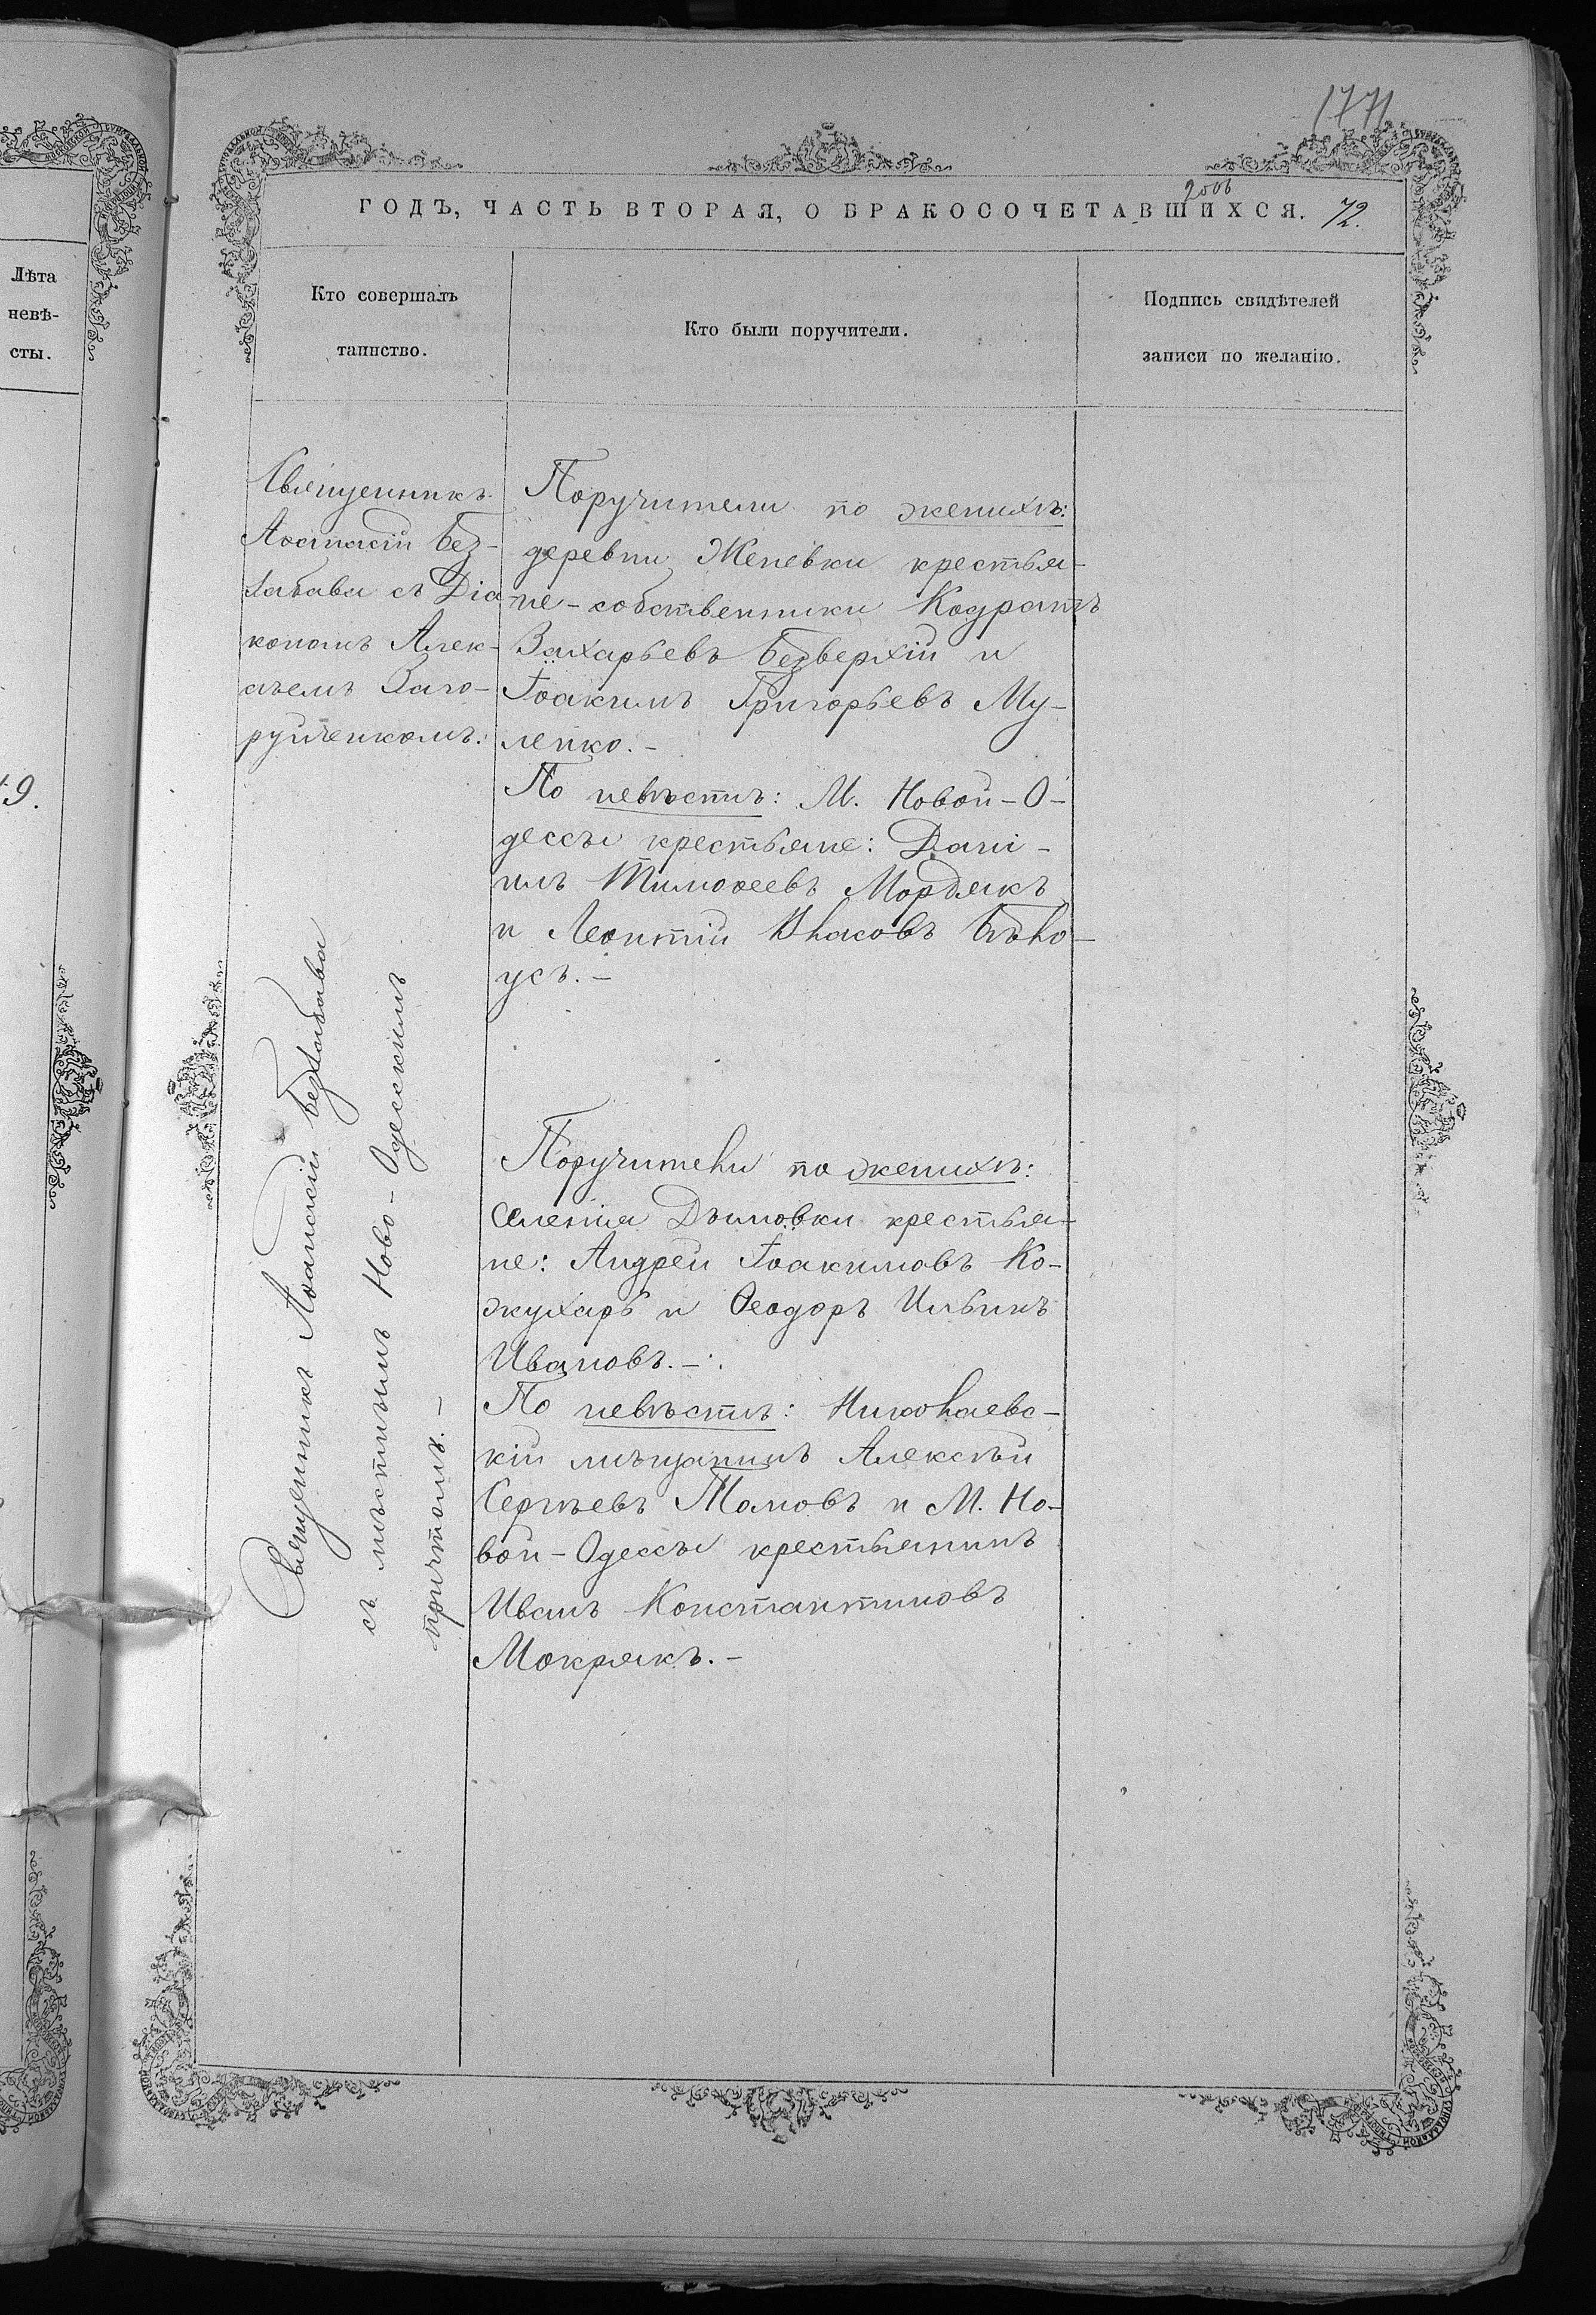 1771
2006
ГОДЪ, ЧАСТЬ ВТОРАЯ, О БРАКОСОЧЕТАВШИХСЯ. 72.
Лѣта
невѣ-
сты.
Кто совершалъ
таинство.
Кто были поручители.
Подпись свидѣтелей
записи по желанію.
Священникъ
Аѳанасій Без-
забава съ Діа
кономъ Алек-
ѣемъ Заго-
руйченкомъ.
Поручители по женихѣ:
деревни Женевки крестья-
не-собственники Кодратъ
Захарьевъ Безверхій и
Іоакимъ Григорьевъ Му-
ленко.-
По невѣстѣ: М. Новой-О-
дессы крестьяне: Дані-
илъ Тимоѳеевъ Мордякъ
и Леонтій Власовъ Бѣло-
усъ.-
Священникъ Аѳанасій Беззабава
съ мѣстнымъ Ново-Одесскимъ
причтомъ.-
Поручители по женихѣ:
Селенія Дымовки крестья-
не: Андрей Іоакимовъ Ко-
жухарь и Ѳеодоръ Ильинъ
Ивановъ.-
По невѣстѣ: Николаевс-
кій мѣщанинъ Алексѣй
Сергѣевъ Томовъ и М. Но-
вой-Одессы крестьянинъ
Иванъ Константиновъ
Мокрякъ.-
9.